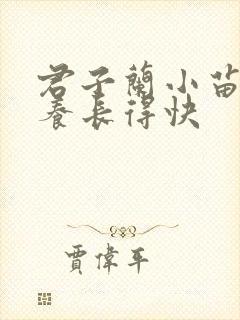 君子蘭小苗
養長得快
賈偉平